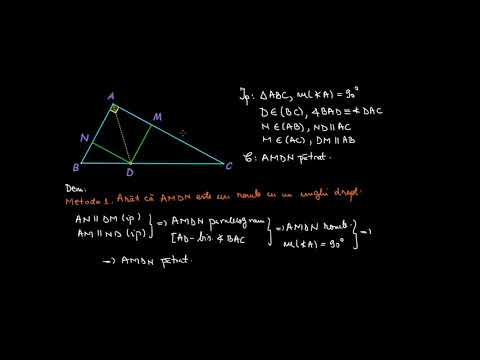 A
M
N
B
D
C
Ip: △ABC, m(∢A) = 90°
D∈(BC), ∢BAD ≡ ∢DAC
N∈(AB), ND ∥ AC
M∈(AC), DM ∥ AB
C: AMDN pătrat.
Dem:
Metoda 1. Arăt că AMDN este un romb cu un unghi drept.
AN ∥ DM (ip)
AM ∥ ND (ip)
} => AMDN paralelogram
[AD - bis. ∢BAC
} => AMDN romb.
m(∢A) = 90°
} =>
=> AMDN pătrat.